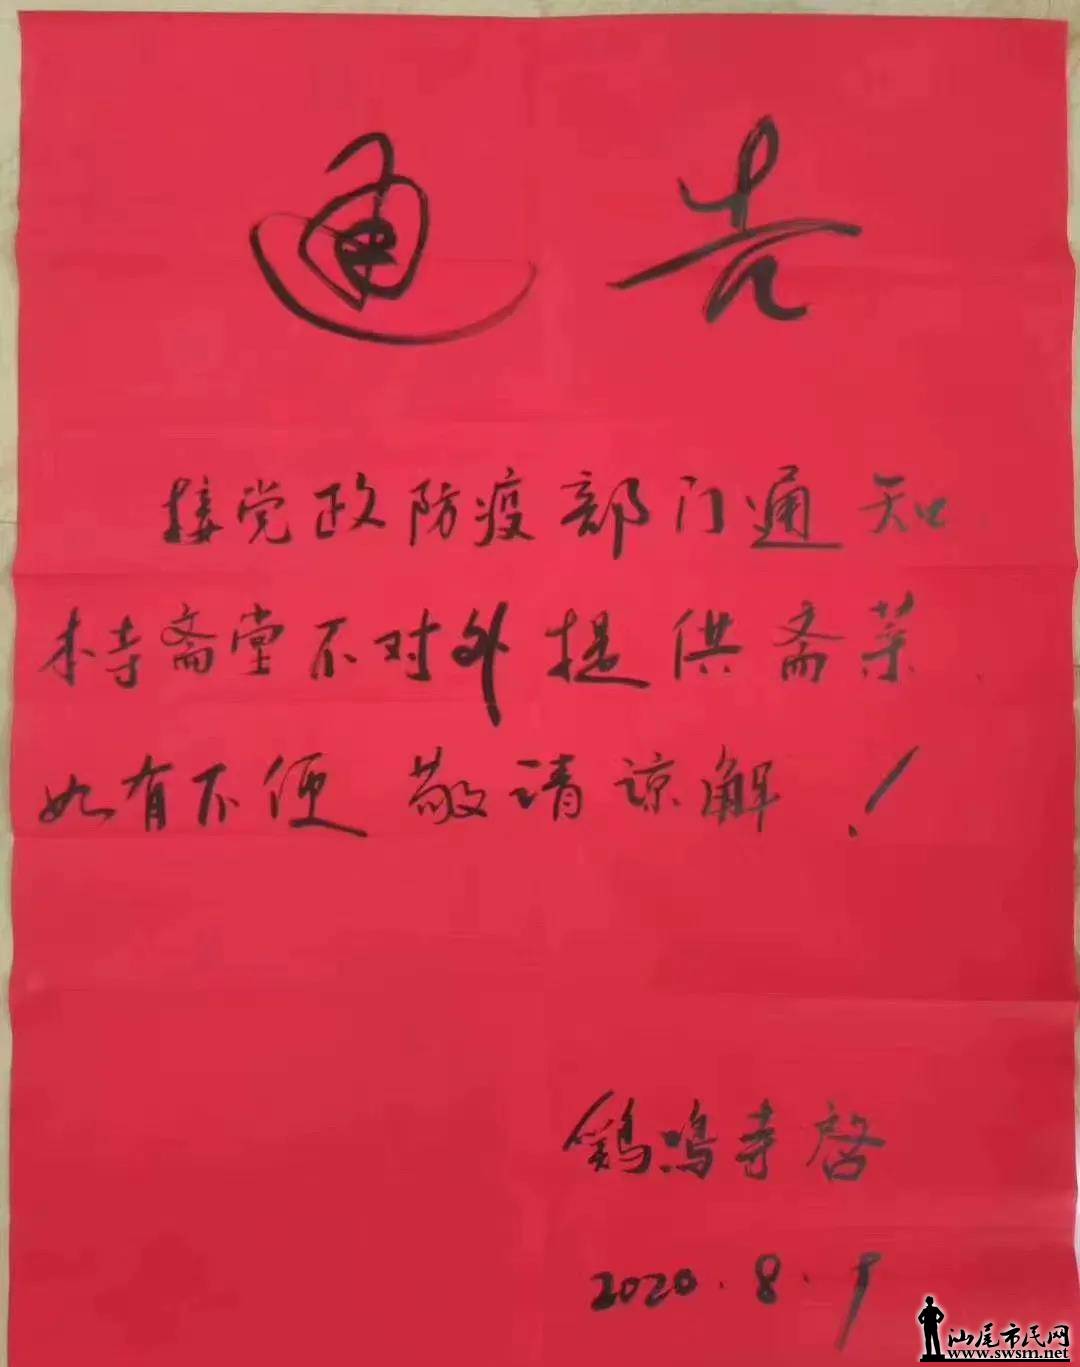 通告
接党政防疫部门通知
本寺斋堂不对外提供斋菜
如有不便 敬请谅解！
鸡鸣寺启
2020.8.9
汕尾市民网
www.swsm.net